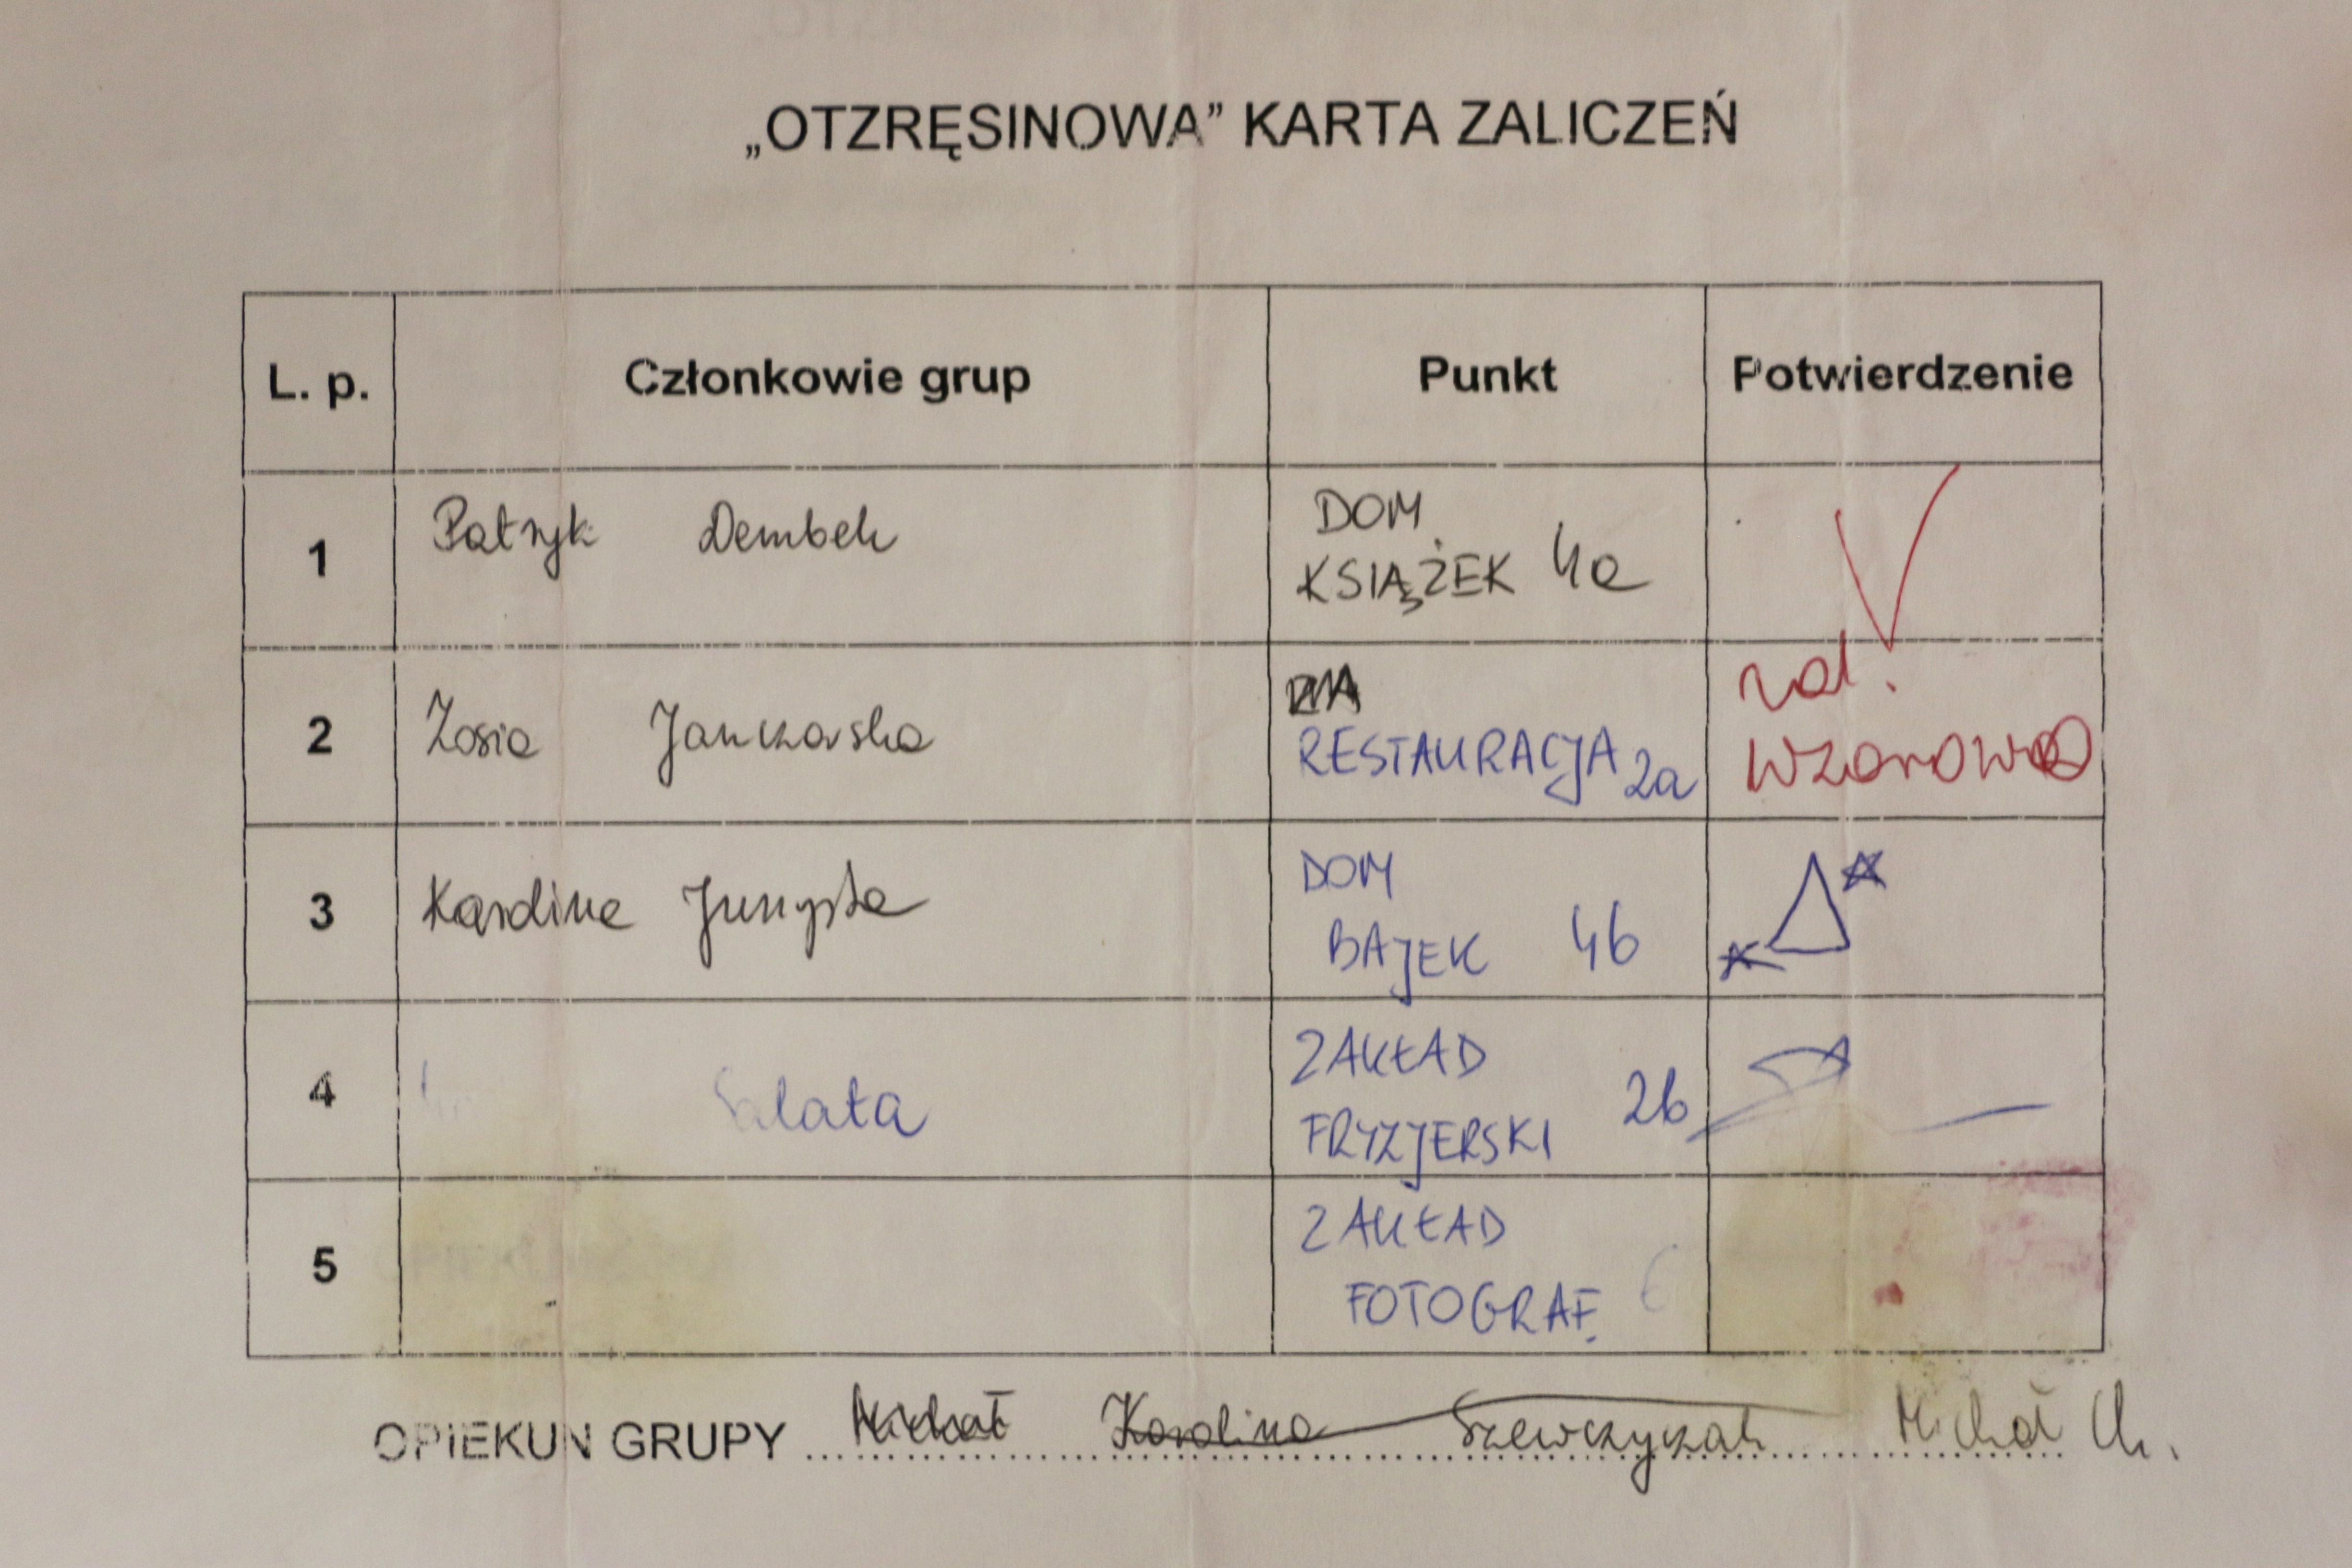 „OTZRĘSINOWA” KARTA ZALICZEŃ
L. p. Członkowie grup Punkt Potwierdzenie
1 Patryk Dembek DOM
KSIĄŻEK 4a
2 Zosia RESTAURACJA 2a zal.
wzorowo
3 Karolina DOM
BAJEK 4b
4 ZAKŁAD
FRYZJERSKI 2b
5 ZAKŁAD
FOTOGRAF.
OPIEKUN GRUPY Michał Karolina Szewczyczak Michał Ch.